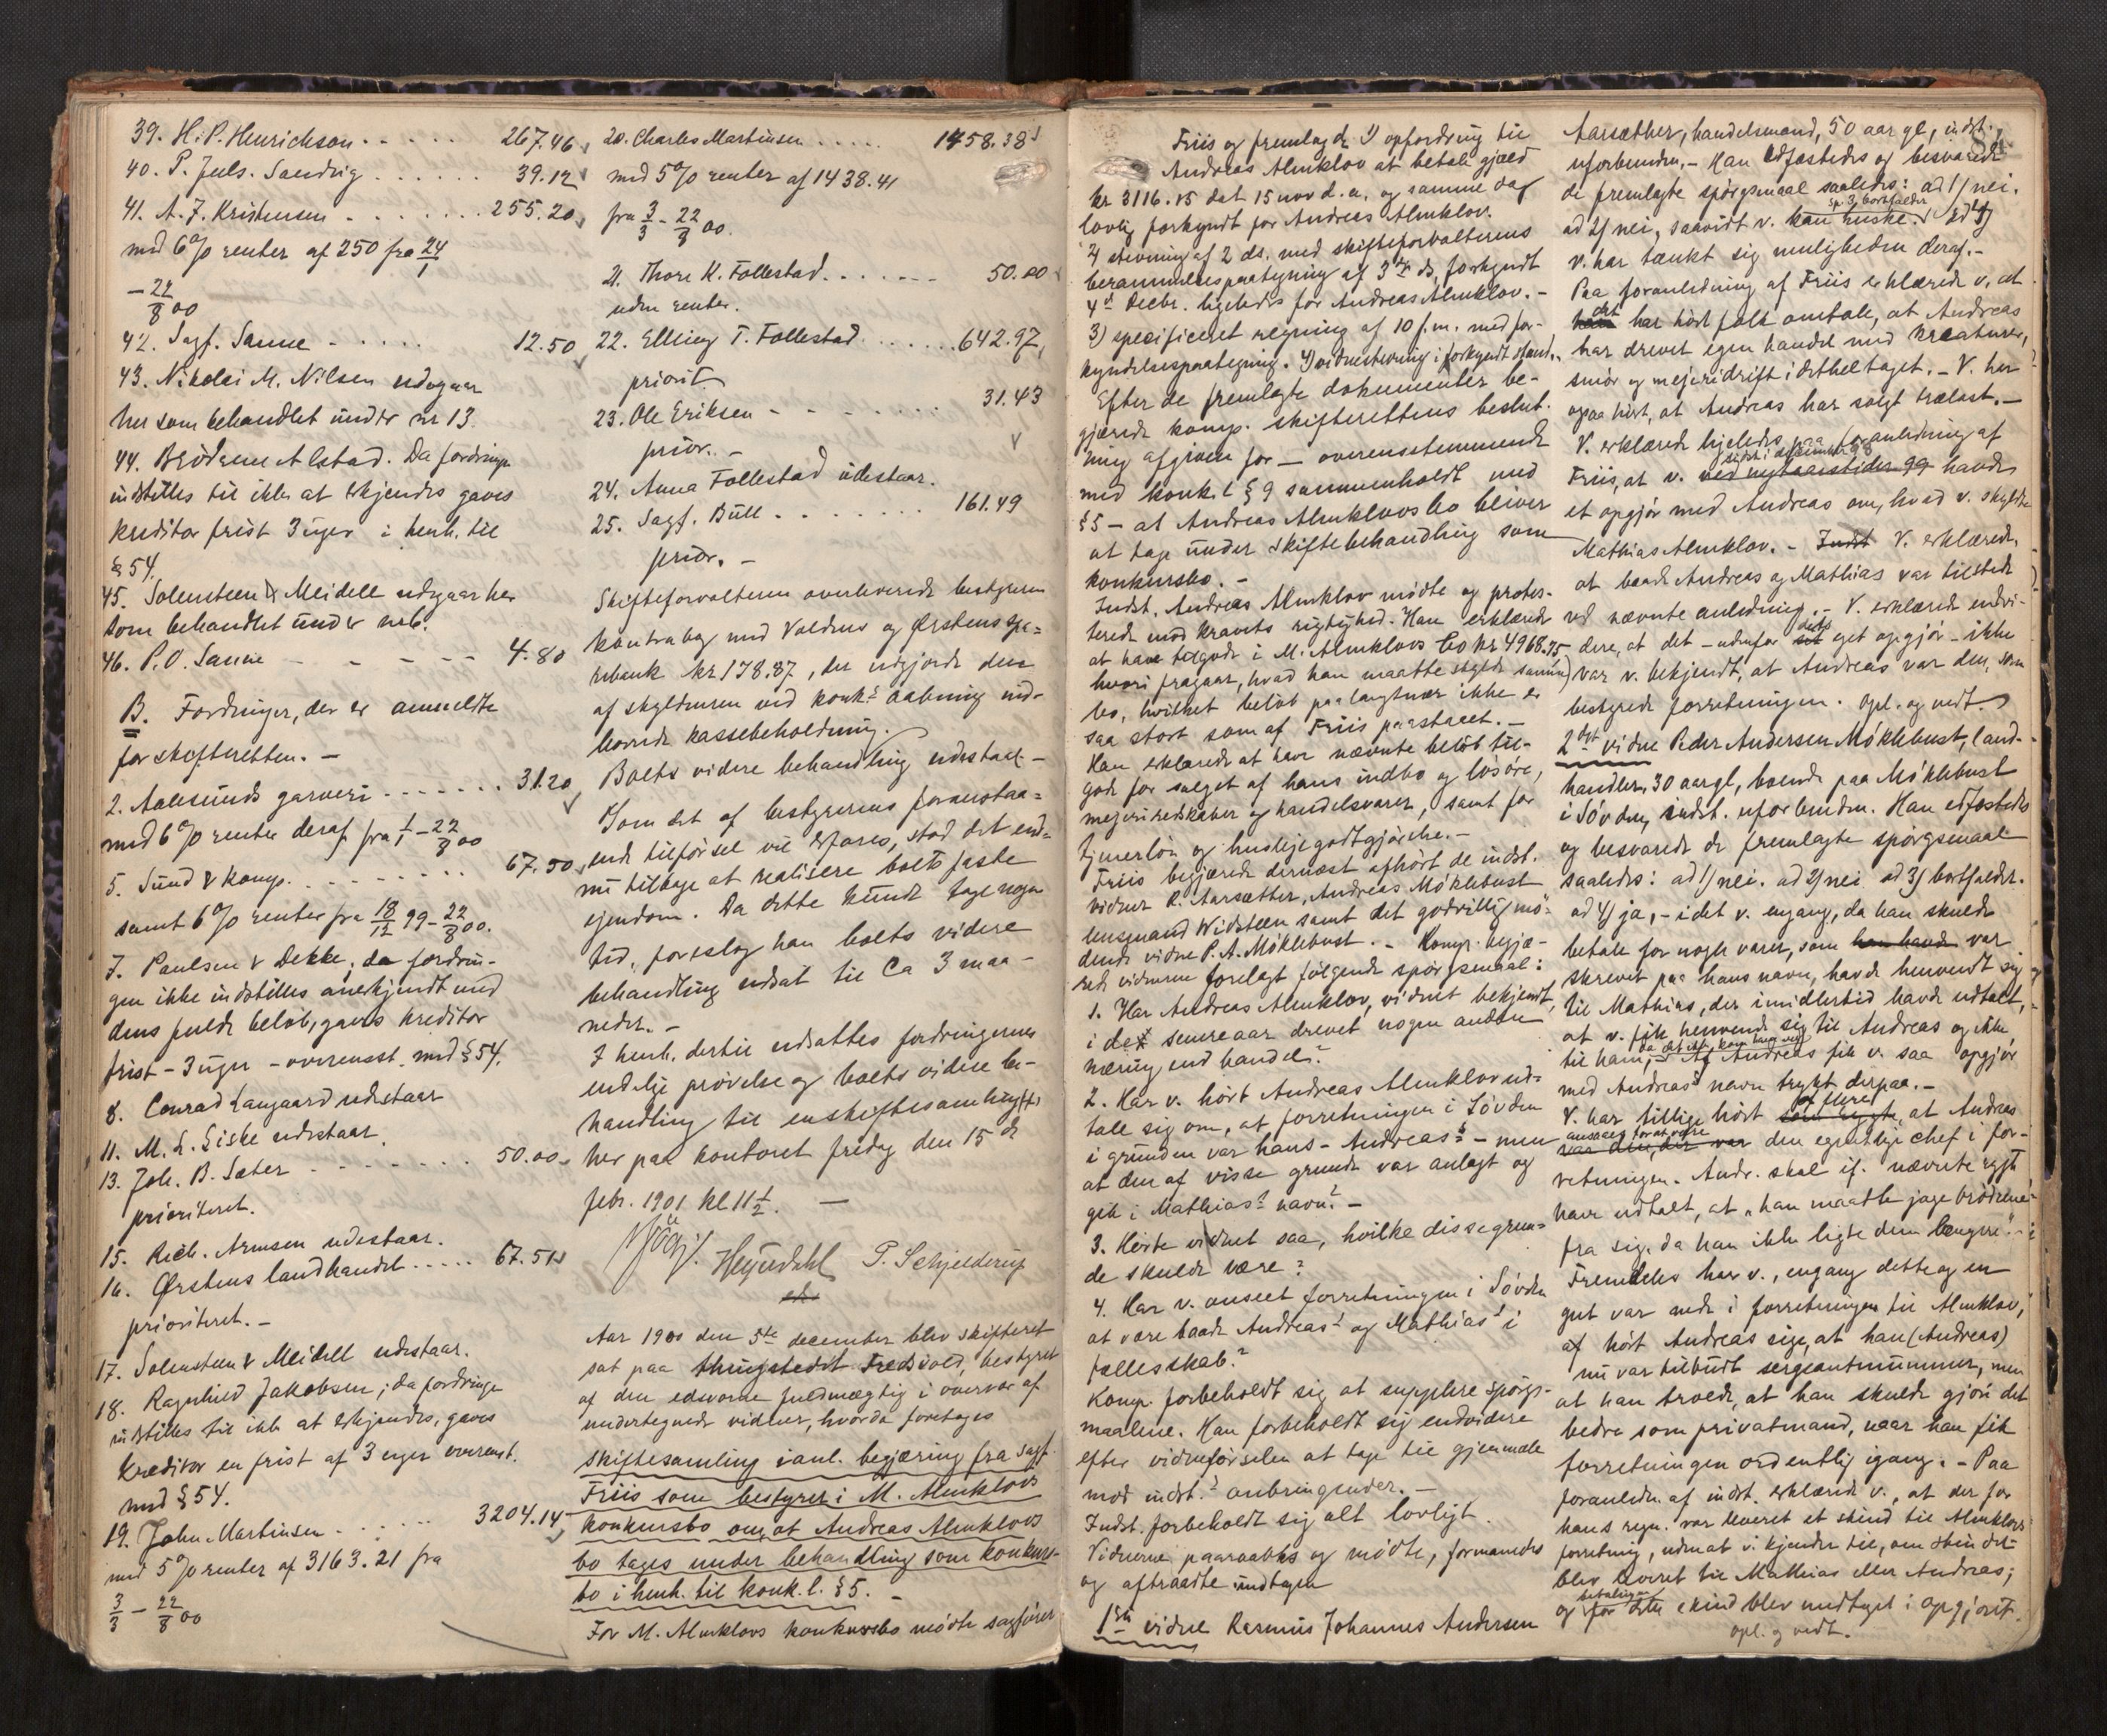 39. H. P. Henrichson . . . . . 267.46
40. P. Juls. Sandvig . . . . . . 39.12
41. A. J. Kristensen . . . . . . . 255.20
med 6% renter af 250 fra 24/1
- 22/8 00
42. Sagf. Sanne . . . . . 12.50
43. Nikolai M. Nilsen udgaar
her som behandlet under nr 13.
44. Brödrene Alstad. Da fordringen
indstilles til ikke at erkjendes gaves
kreditor frist 3 uger i henh. til
§ 54.
45. Solensteen & Meidell udgaar her
som behandlet under nr 6.
46. P. O. Sanne - - - - - 4.80
B. Fordringer, der er anmeldte
for skifteretten. -
2. Aalesunds garveri . . . . . . . 31.20
med 6% renter deraf fra 1/1 - 22/8 00
5. Sund & komp. . . . . . . . . . 67.50
samt 6% renter fra 18/12 99 - 22/8 00.
7. Paulsen & Dekke; da fordrin-
gen ikke indstilles anerkjendt med
dens fulde belöb, gaves kreditor
frist - 3 uger - overensst. med § 54.
8. Conrad Langaard udestaar
11. M. L. Giske udestaar.
13. Joh. B. Sæter - . . . . . . . . 50.00
prioriteret.
15. Rich. Arnesen udestaar.
16. Ørstens landhandel . . . . . 67.51
prioriteret. -
17. Solensteen & Meidell udestaar.
18. Ragnhild Jakobsen; da fordringen
indstilles til ikke at erkjendes, gaves
kreditor en frist af 3 uger overenst.
med § 54.
19. John Martinsen . . . . . . 3204.14
med 5% renter af 3163.21 fra
3/3 - 22/8 00
20. Charles Martinsen . . . . . 1458.38
med 5% renter af 1438.41
fra 3/3 - 22/8 00.
21. Thore K. Follestad. . . . . - - 50.00
uden renter.
22. Elling T. Follestad . . . . . . 642.97
priorit.
23. Ole Eriksen - - - . . . . . 31.43
prior. -
24. Anna Follestad udestaar.
25. Sagf. Bull - . . . . . . . 161.49
prior. -
Skifteforvalteren overleverede bestyreren
kontrabog med Voldens og Ørstens spa-
rebank kr 178.87, der udgjorde den
af skyldneren ved konks aabning ind-
leverede kassebeholdning.
Boets videre behandling udestaar. -
Som det af bestyrerens foranstaa-
ende tilförsel vil erfares, stod det end-
nu tilbage at realisere boets faste
ejendom. Da dette kunde tage nogen
tid, foreslog han boets videre
behandling udsat til Ca 3 maa-
neder. -
I henh. dertil udsattes fordringernes
endelige prövelse og boets videre be-
handling til en skiftesamling ttes
her paa kontoret fredag den 15de
febr. 1901 kl 11 1/2. -
Heyerdahl P. Schjelderup
Aar 1900 den 5te december blev skifteret
sat paa thingstedet Fredsvold, bestyret
af den edsvorne fuldmægtig i övervær af
undertegnede vidner, hvorda foretages
skiftesamling i anl. begjæring fra sagf.
Friis som bestyrer i M. Almklovs
konkursbo om, at Andreas Almklovs
bo tages under behandling som konkurs-
bo i henh. til konk. l. § 5. -
For M. Almklovs konkursbo mödte sagförer
Friis og fremlagde 1) opfordring til
Andreas Almklov at betale gjæld
kr 3116.15 dat 15 nov d. a. og samme dag
lovlig forkyndt for Andreas Almklov.
2) stevning af 2 ds. med skifteforvalterens
berammelsespaategning af 3de ds, forkyndt
4de decbr. ligeledes for Andreas Almklov. -
3) specificeret regning af 10 f. m. med for-
kyndelsespaategning. 4) vidnestevning i forkyndt stand.
Efter de fremlagte dokumenter be-
gjærede komp. skifterettens beslut-
ning afgiven for - overensstemmende
med konk. l § 9 sammenholdt med
§ 5 - at Andreas Almklovs bo bliver
at tage under skiftebehandling som
konkursbo. -
Indst. Andreas Almklov mödte og protes-
terede mod kravets rigtighed. Han erklærede
at have tilgode i M. Almklovs bo kr 4968.75
hvori fragaar, hvad han maatte skylde samme
bo, hvilket belöb paa langtnær ikke er
saa stort som af Friis paastaaet. -
Han erklærede at have nævnte belöb til-
gode for salget af hans indbo og lösöre,
mejeriredskaber og handelsvarer, samt for
tjenerlön og huslejegodtgjörelse. -
Friis begjærede dernæst afhört de indst.
vidner R. Aarsæther, Andreas Möklebust
lensmand Widsteen samt det godvillig mö-
dende vidne P. A. Möklebust. - Komp. begjæ-
rede vidnerne forelagt følgende spörgsmaal:
1. Har Andreas Almklov, vidnet bekjendt,
i de senere aar drevet nogen anden
næring end handel?
2. Har v. hört Andreas Almklov ud-
tale sig om, at forretningen i Sövden
i grunden var hans - Andreas's - men
at den af visse grunde var anlagt og
gik i Mathias's navn? -
3. Hörte vidnet saa, hvilke disse grun-
de skulde være?
4. Har v. anseet forretningen i Sövden
at være baade Andreas's og Mathias's i
fællesskab?
Komp. forbeholdt sig at supplere spörgs-
maalene. Han forbeholdt sig endvidere
efter vidneförselen at tage til gjenmæle
mod indst.s anbringender. -
Indst. forbeholdt sig alt lovligt.
Vidnerne paaraabtes og mödte, formanedes
og aftraadte undtagen
1ste vidne Rasmus Johannes Andersen
84
Aarsæther, handelsmand, 50 aar gl, indst.
uforbunden. - Han edfæstedes og besvarede
de fremlagte spörgsmaal saaledes: ad 1/ nei.
sp. 3 bortfalder
ad 2/ nei, saavidt v. kan huske. ad 4/
v. har tænkt sig muligheden deraf. -
Paa foranledning af Friis erklærede v, at
det har hört folk omtale, at Andreas
har drevet egen handel med kreaturer,
smör og mejeridrift i det hele taget. - V. har
ogsaa hört, at Andreas har solgt trælast. -
V. erklærede ligeledes paa foranledning af
sidst i december 98
Friis, at v. ved nytaarstider 99 havde
et opgjör med Andreas om, hvad v. skyldte
Mathias Almklov. - Indst V. erklærede,
at baade Andreas og Mathias var tilstede
ved nævnte anledning. - V. erklærede endvi-
dere, at det - udenfor dets eget opgjör - ikke
var v. bekjendt, at Andreas var den, som
bestyrede forretningen. Opl. og vedt.
2det vidne Peder Andersen Möklebust, land-
handler, 30 aar gl, boende paa Möklebust
i Sövden, indst. uforbunden. Han edfæstedes
og besvarede de fremlagte spörgsmaal
saaledes: ad 1/ nei. ad 2/ nei ad 3/ bortfaldet.
ad 4/ ja, - idet v. engang, da han skulde
betale for nogle varer, som han havde var
skrevet paa hans navn, havde henvendt sig
til Mathias, der imidlertid havde udtalt,
at v. fik henvende sig til Andreas og ikke
da det ikke kom ham ved
til ham, - Af Andreas fik v. saa opgjör
med Andreas's navn trykt derpaa. -
af flere
V. har tillige hört som rygte, at Andreas
ansaaes for at være
var den, der var den egentlige chef i for-
retningen. Andr. skal if. nævnte rygte
have udtalt, at "han maatte jage brödrene
fra sig, da han ikke ligte dem længere". -
Fremdeles har v., engang dette og en
gut var nede i forretningen til Almklov,
af hört Andreas sige, at han (Andreas)
nu var tilbudt sergeantnummer, men
at han troede, at han skulde gjöre det
bedre som privatmand, naar han fik
forretningen ordentlig igang. - Paa
foranledn. af indst. erklærede v., at der for
hans regn. var leveret et skind til Almklovs
forretning, uden at v. kjender til, om skindet
blev leveret til Mathias eller Andreas;
betalingen
og for dette skind blev medtaget i opgjöret.
opl. og vedt.